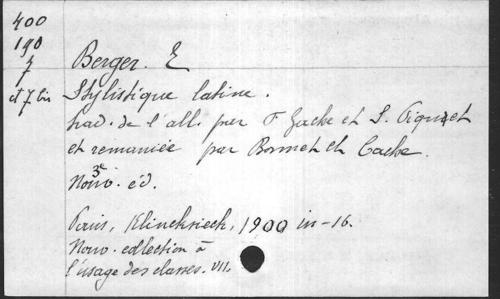 400
190
7
et 7 bis
Berger. E
Stylistique latine.
trad. de l'all. par F Gache et S. Piquet
et remaniée par Bonnet et Gache.
3e
Nouv. éd.
Paris, Klincksieck, 1900 in-16.
Nouv. collection à
l'usage des classes. VII.